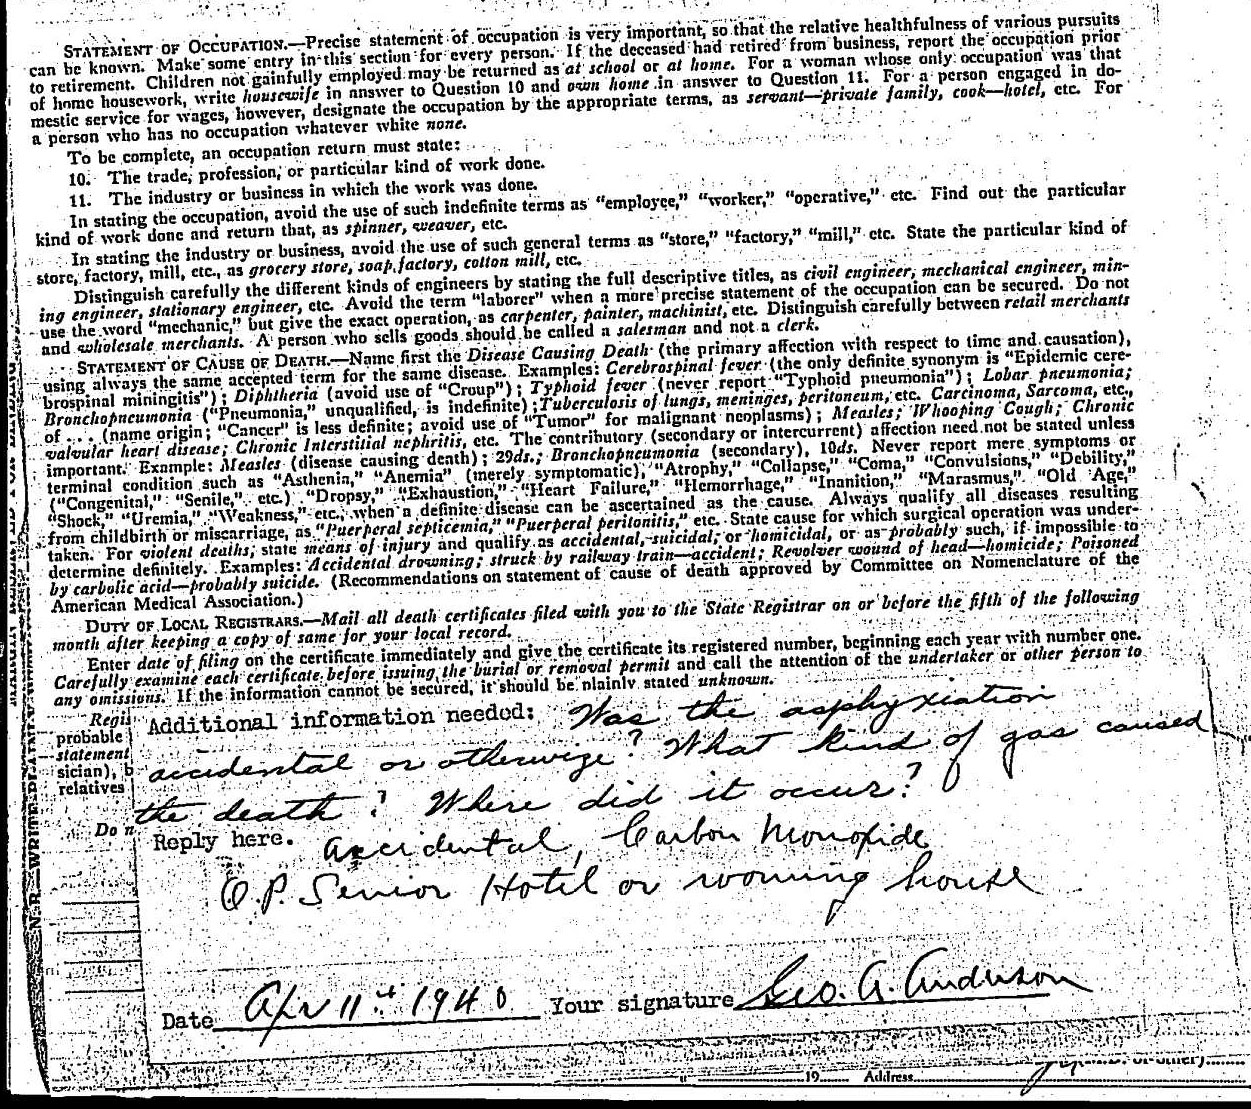 STATEMENT OF OCCUPATION.—Precise statement of occupation is very important, so that the relative healthfulness of various pursuits
can be known. Make some entry in this section for every person. If the deceased had retired from business, report the occupation prior
to retirement. Children not gainfully employed may be returned as at school or at home. For a woman whose only occupation was that
of home housework, write housewife in answer to Question 10 and own home in answer to Question 11. For a person engaged in do-
mestic service for wages, however, designate the occupation by the appropriate terms, as servant—private family, cook—hotel, etc. For
a person who has no occupation whatever white none.
To be complete, an occupation return must state:
10. The trade, profession, or particular kind of work done.
11. The industry or business in which the work was done.
In stating the occupation, avoid the use of such indefinite terms as "employee," "worker," "operative," etc. Find out the particular
kind of work done and return that, as spinner, weaver, etc.
In stating the industry or business, avoid the use of such general terms as "store," "factory," "mill," etc. State the particular kind of
store, factory, mill, etc., as grocery store, soap factory, cotton mill, etc.
Distinguish carefully the different kinds of engineers by stating the full descriptive titles, as civil engineer, mechanical engineer, min-
ing engineer, stationary engineer, etc. Avoid the term "laborer" when a more precise statement of the occupation can be secured. Do not
use the word "mechanic," but give the exact operation, as carpenter, painter, machinist, etc. Distinguish carefully between retail merchants
and wholesale merchants. A person who sells goods should be called a salesman and not a clerk.
STATEMENT OF CAUSE OF DEATH.—Name first the Disease Causing Death (the primary affection with respect to time and causation),
using always the same accepted term for the same disease. Examples: Cerebrospinal fever (the only definite synonym is "Epidemic cere-
brospinal miningitis"); Diphtheria (avoid use of "Croup"); Typhoid fever (never report "Typhoid pneumonia"); Lobar pneumonia;
Bronchopneumonia ("Pneumonia," unqualified, is indefinite); Tuberculosis of lungs, meninges, peritoneum, etc. Carcinoma, Sarcoma, etc.,
of ... (name origin; "Cancer" is less definite; avoid use of "Tumor" for malignant neoplasms); Measles; Whooping Cough; Chronic
valvular heart disease; Chronic Interstitial nephritis, etc. The contributory (secondary or intercurrent) affection need not be stated unless
important. Example: Measles (disease causing death); 29ds.; Bronchopneumonia (secondary), 10ds. Never report mere symptoms or
terminal condition such as "Asthenia," "Anemia" (merely symptomatic), "Atrophy," "Collapse," "Coma," "Convulsions," "Debility,"
("Congenital," "Senile," etc.) "Dropsy," "Exhaustion," "Heart Failure," "Hemorrhage," "Inanition," "Marasmus," "Old Age,"
"Shock," "Uremia," "Weakness," etc., when a definite disease can be ascertained as the cause. Always qualify all diseases resulting
from childbirth or miscarriage, as "Puerperal septicemia," "Puerperal peritonitis," etc. State cause for which surgical operation was under-
taken. For violent deaths, state means of injury and qualify as accidental, suicidal, or homicidal, or as probably such, if impossible to
determine definitely. Examples: Accidental drowning; struck by railway train—accident; Revolver wound of head—homicide; Poisoned
by carbolic acid—probably suicide. (Recommendations on statement of cause of death approved by Committee on Nomenclature of the
American Medical Association.)
DUTY OF LOCAL REGISTRARS.—Mail all death certificates filed with you to the State Registrar on or before the fifth of the following
month after keeping a copy of same for your local record.
Enter date of filing on the certificate immediately and give the certificate its registered number, beginning each year with number one.
Carefully examine each certificate before issuing the burial or removal permit and call the attention of the undertaker or other person to
any omissions. If the information cannot be secured, it should be plainly stated unknown.
Regis
probable
statement
sician), b
relatives
Do n
Additional information needed: Was the asphyxiation
accidental or otherwize? What kind of gas caused
the death? Where did it occur?
Reply here. accidental, Carbon Monoxide
O.P. Senior Hotel or rooming house
Date Apr 11th 1940 Your signature Geo. A. Anderson
N. B.—WRITE PLAINLY
19 Address